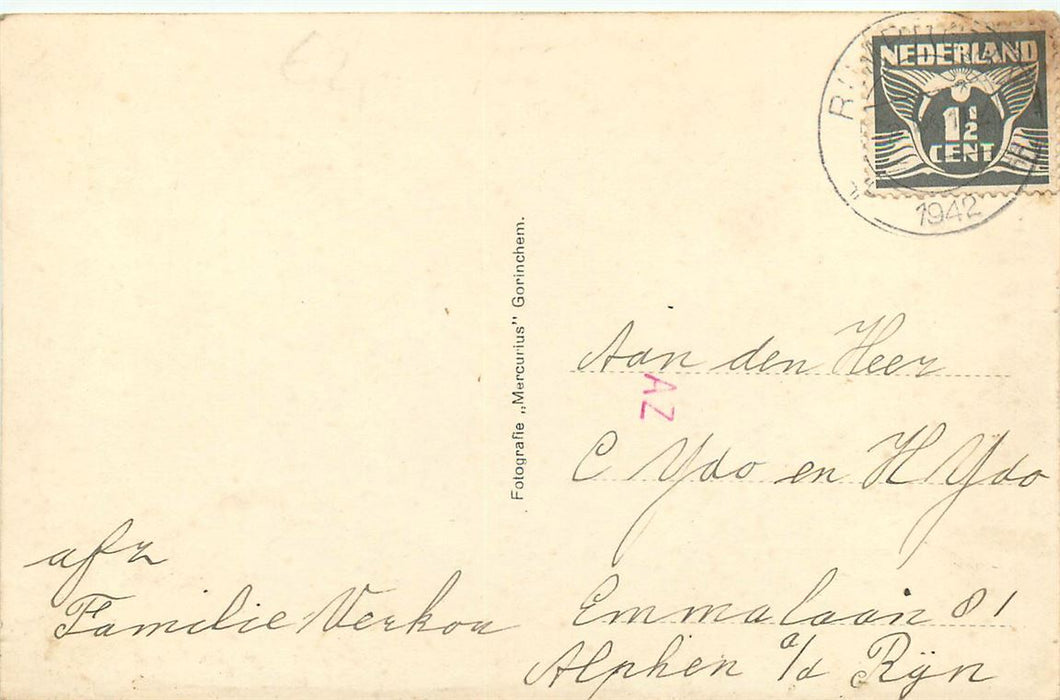 NEDERLAND
1½
CENT
1942
Fotografie „Mercurius" Gorinchem.
Aan den Heer
AZ
C Ydo en H Ydo
Emmalaan 81
Alphen a/d Rijn
afz
Familie Verkou